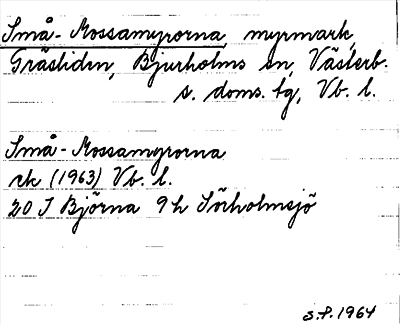 Små-Mossamyrorna, myrmark,
Gräsliden, Bjurholms sn, Västerb.
s. doms. tg, Vb. l.
Små-Mossamyrorna
rk (1963) Vb. l.
20 J Björna 9h Sörholmsjö
S.P. 1964